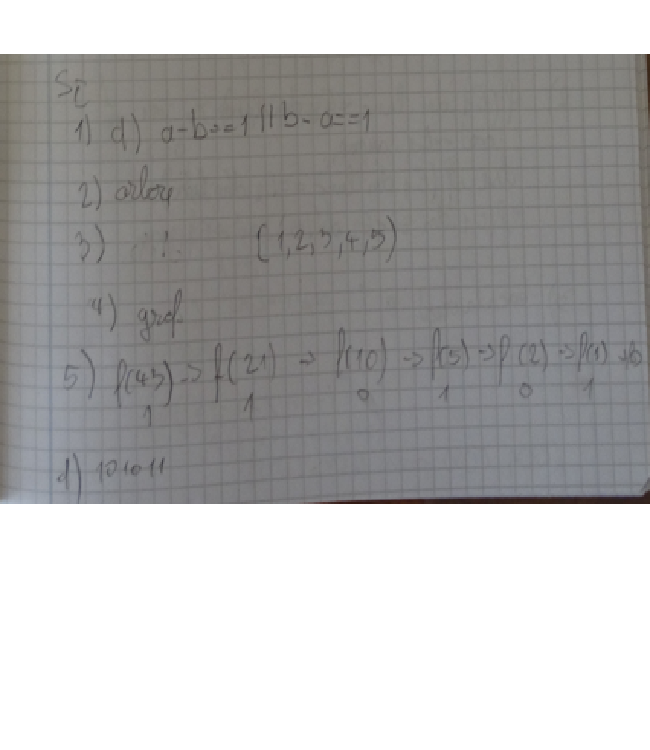 SI
1) d) a-b==1 || b-a==1
2) arbori
3) (1,2,3,4,5)
4) graf
5) f(43) -> f(21) -> f(10) -> f(5) -> f(2) -> f(1) ->0
1 1 0 1 0 1
d) 101011